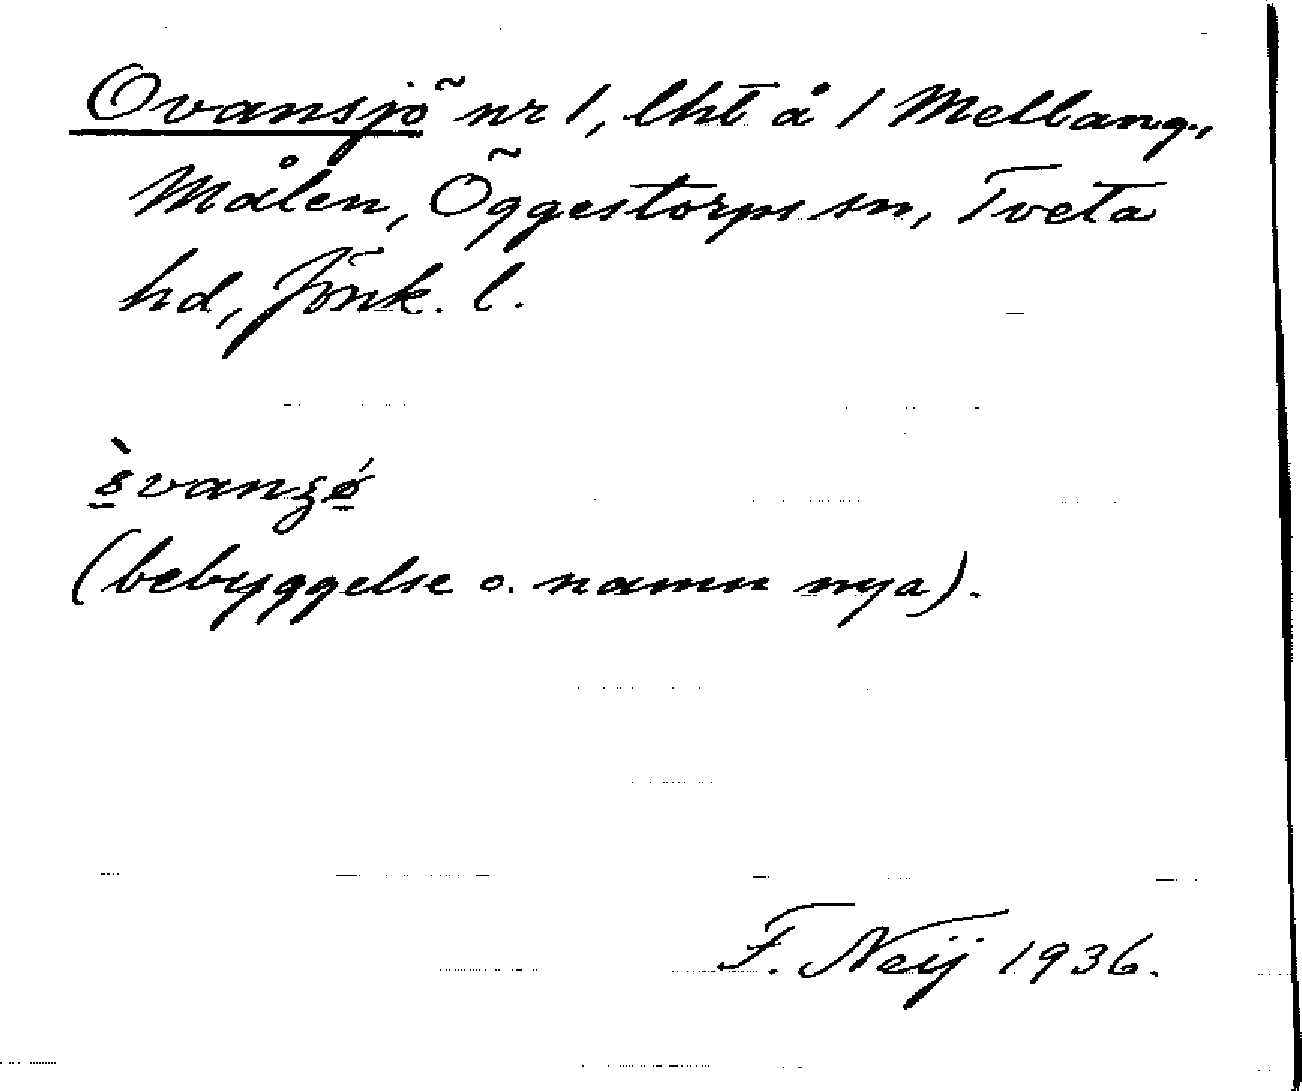 Ovansjö nr 1, lht å 1 Mellang.,
Målen, Öggestorps sn, Tveta
hd, Jönk. l.
(bebyggelse o. namn nya).
F. Neij 1936.